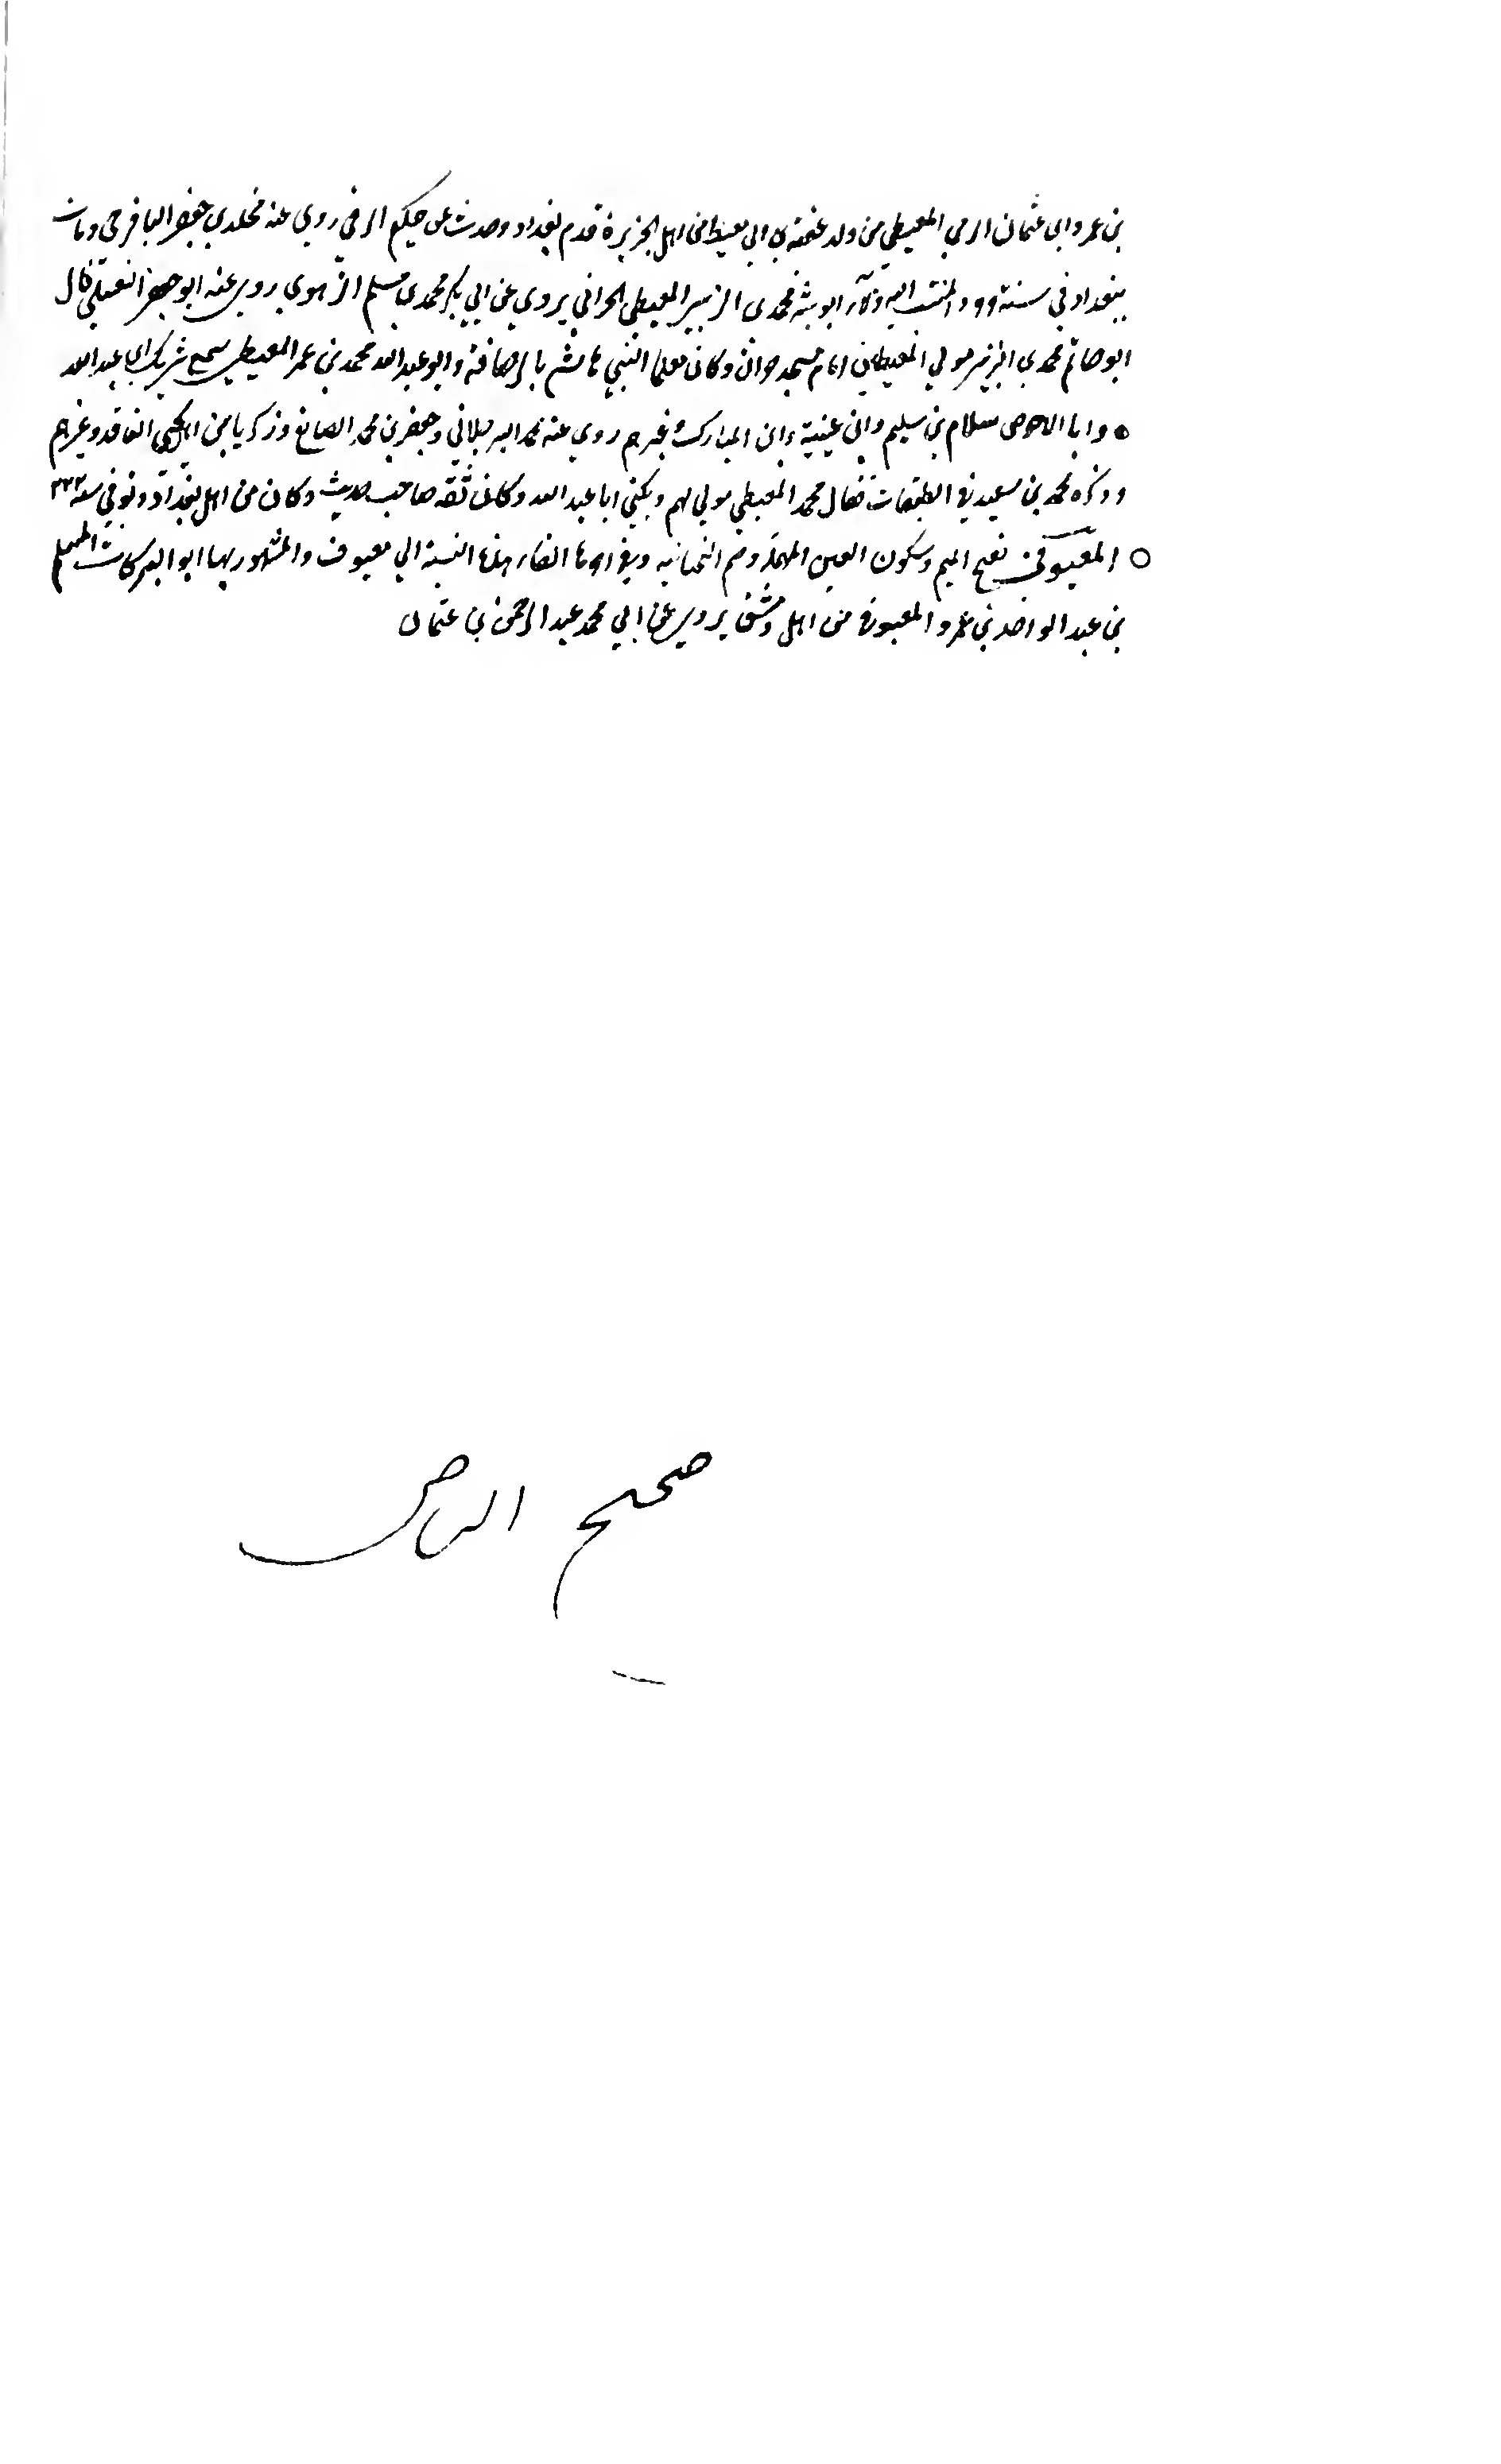 بن عمرو ابى عثمان الرمي المعيطي من ولد عقبة بن ابي معيط من اهل الجزيرة قدم بغداد وحدث عن حكيم الرقي روي عنه مخلد بن جعفر الباقرحي ومات
ببغداد في سنة ٩٩ و المنتسب اليه ولاء ابو بشر محمد بن الزبير المعيطي الحراني يروي عن ابي بكر محمد بن مسلم الزهري روى عنه ابو جعفر النفيلي قال
ابو حاتم محمد بن الزبير مولي المعيطين امام مسجد حران وكان معلما لبني هاشم بالرصافة وابو عبد الله محمد بن عمر المعيطي سمع شريك ابن عبد الله
وابا الاحوص سلام بن سليم وابن عيينة وابن المبارك وغيرهم روي عنه محمد البرجلاني وجعفر بن محمد الصائغ وزكريا بن يحيى الناقد وغيرهم
وذكره محمد بن سعيد في الطبقات فقال محمد المعيطي مولي لهم ويكني ابا عبد الله وكان ثقه صاحب حديث وكان من اهل بغداد وتوفي سنة ٢٢٢
○ المعيوفي بفتح الميم وسكون العين المهملة وضم التحتانيه وفي اخرها الفاء هذه النسبة الي معيوف والمشهور بها ابو البركات المسلم
بن عبد الواحد بن عمرو المعيوفي من اهل دمشق يروي عن ابي محمد عبد الرحمن بن عثمان
صحيح